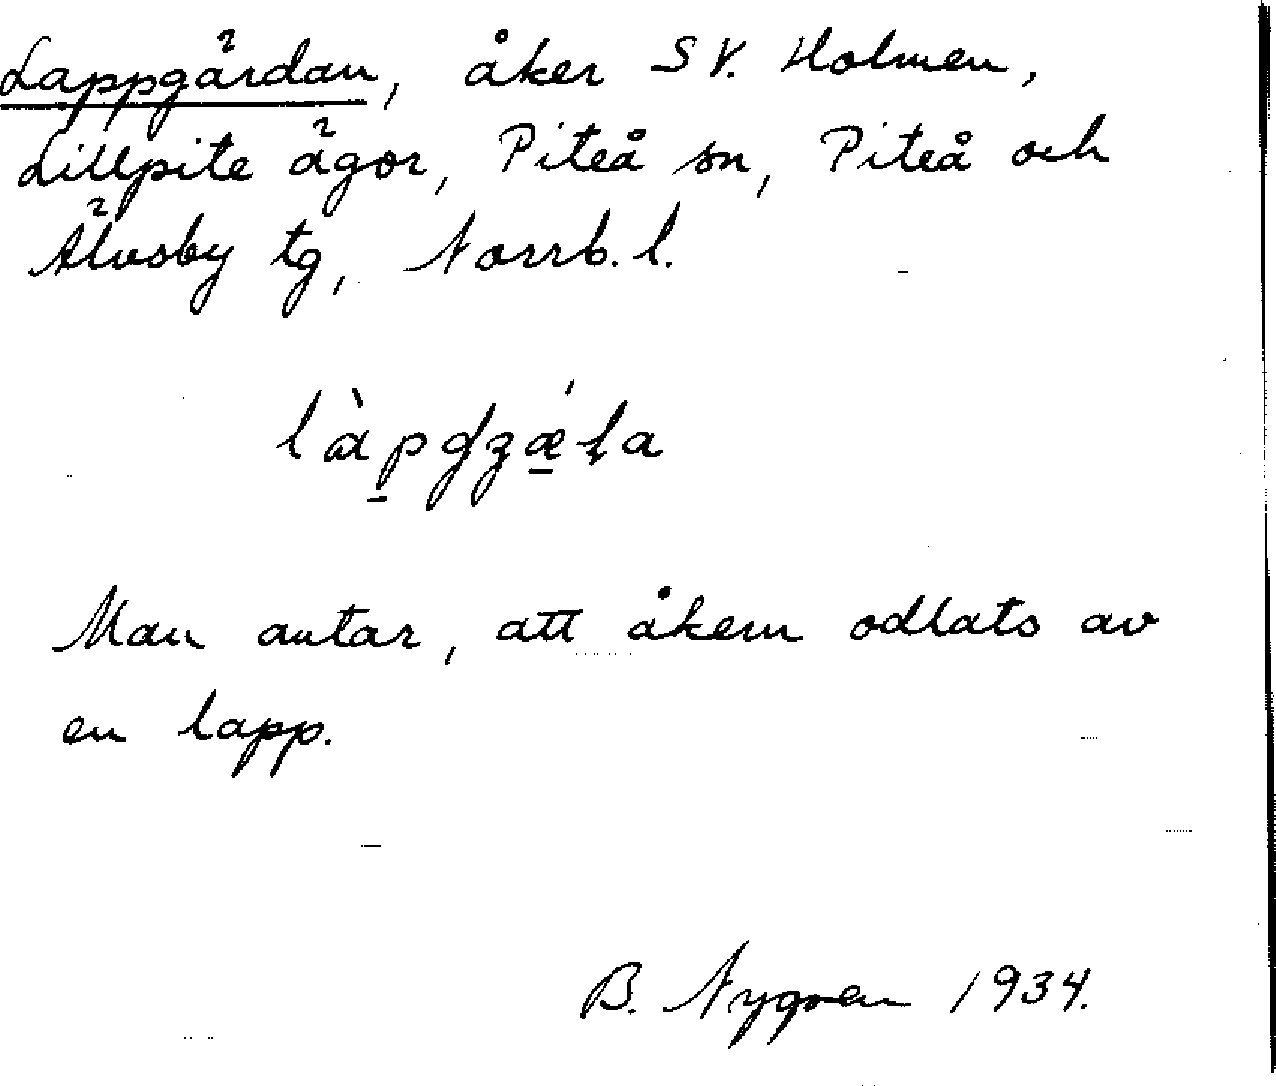 Lappgärdan, åker SV. Holmen,
Lillpite ägor, Piteå sn, Piteå och
Älvsby tg, Norrb. l.
Man antar, att åkern odlats av
en lapp.
B. Nygren 1934.